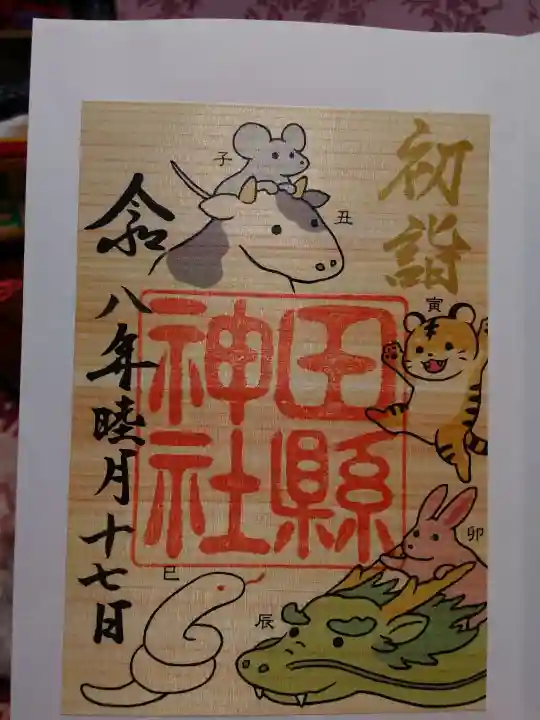 初詣
子
丑
寅
卯
辰
巳
田縣
神社
令和八年睦月十七日